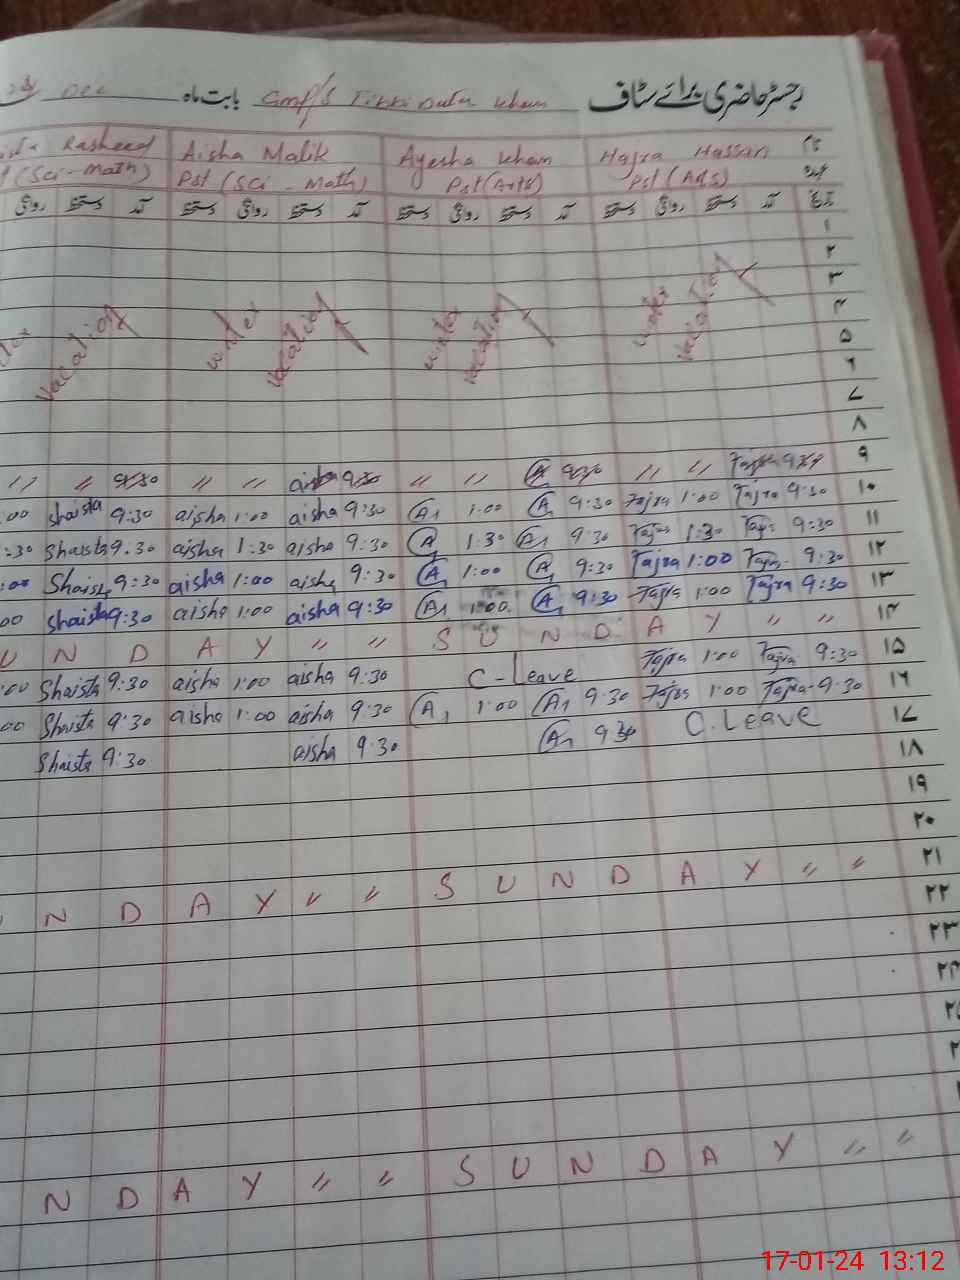 رجسٹر حاضری برائے سٹاف بابت ماہ GMP/S Tikki Data Kham Dec
Hajra Hassan Ayesha Kham Aisha Malik Rasheed نام
Pst (Arts) Pst (Arts) Pst (Sci - Math) (Sci - Math) عہدہ
تاریخ آمد دستخط روانگی دستخط آمد دستخط روانگی دستخط آمد دستخط روانگی دستخط آمد دستخط روانگی
۱
۲
۳
۴
۵
۶
۷
۸
winter vacation winter vacation winter vacation vacation
۹
〃 〃 9:30 〃 〃 aisha 9:30 〃 〃 A 9:30 〃 〃 Tajra 9:30 ۱۰
:00 Shaista 9:30 aisha 1:00 aisha 9:30 A 1:00 A 9:30 Tajra 1:00 Tajra 9:30 ۱۱
:30 Shaista 9:30 aisha 1:30 aisha 9:30 A 1:30 A 9:30 Tajra 1:30 Tajra 9:30 ۱۲
:00 Shaista 9:30 aisha 1:00 aisha 9:30 A 1:00 A 9:30 Tajra 1:00 Tajra 9:30 ۱۳
00 Shaista 9:30 aisha 1:00 aisha 9:30 A 1:00 A 9:30 Tajra 1:00 Tajra 9:30 ۱۴
U N D A Y 〃 〃 S U N D A Y 〃 〃
:00 Shaista 9:30 aisha 1:00 aisha 9:30 C-Leave Tajra 1:00 Tajra 9:30 ۱۵
00 Shaista 9:30 aisha 1:00 aisha 9:30 A 1:00 A 9:30 Tajra 1:00 Tajra 9:30 ۱۶
Shaista 9:30 aisha 9:30 A 9:30 C.Leave ۱۷
۱۸
۱۹
۲۰
N D A Y 〃 〃 S U N D A Y 〃 〃 ۲۱
۲۲
۲۳
۲۴
N D A Y 〃 〃 S U N D A Y 〃 〃
17-01-24 13:12